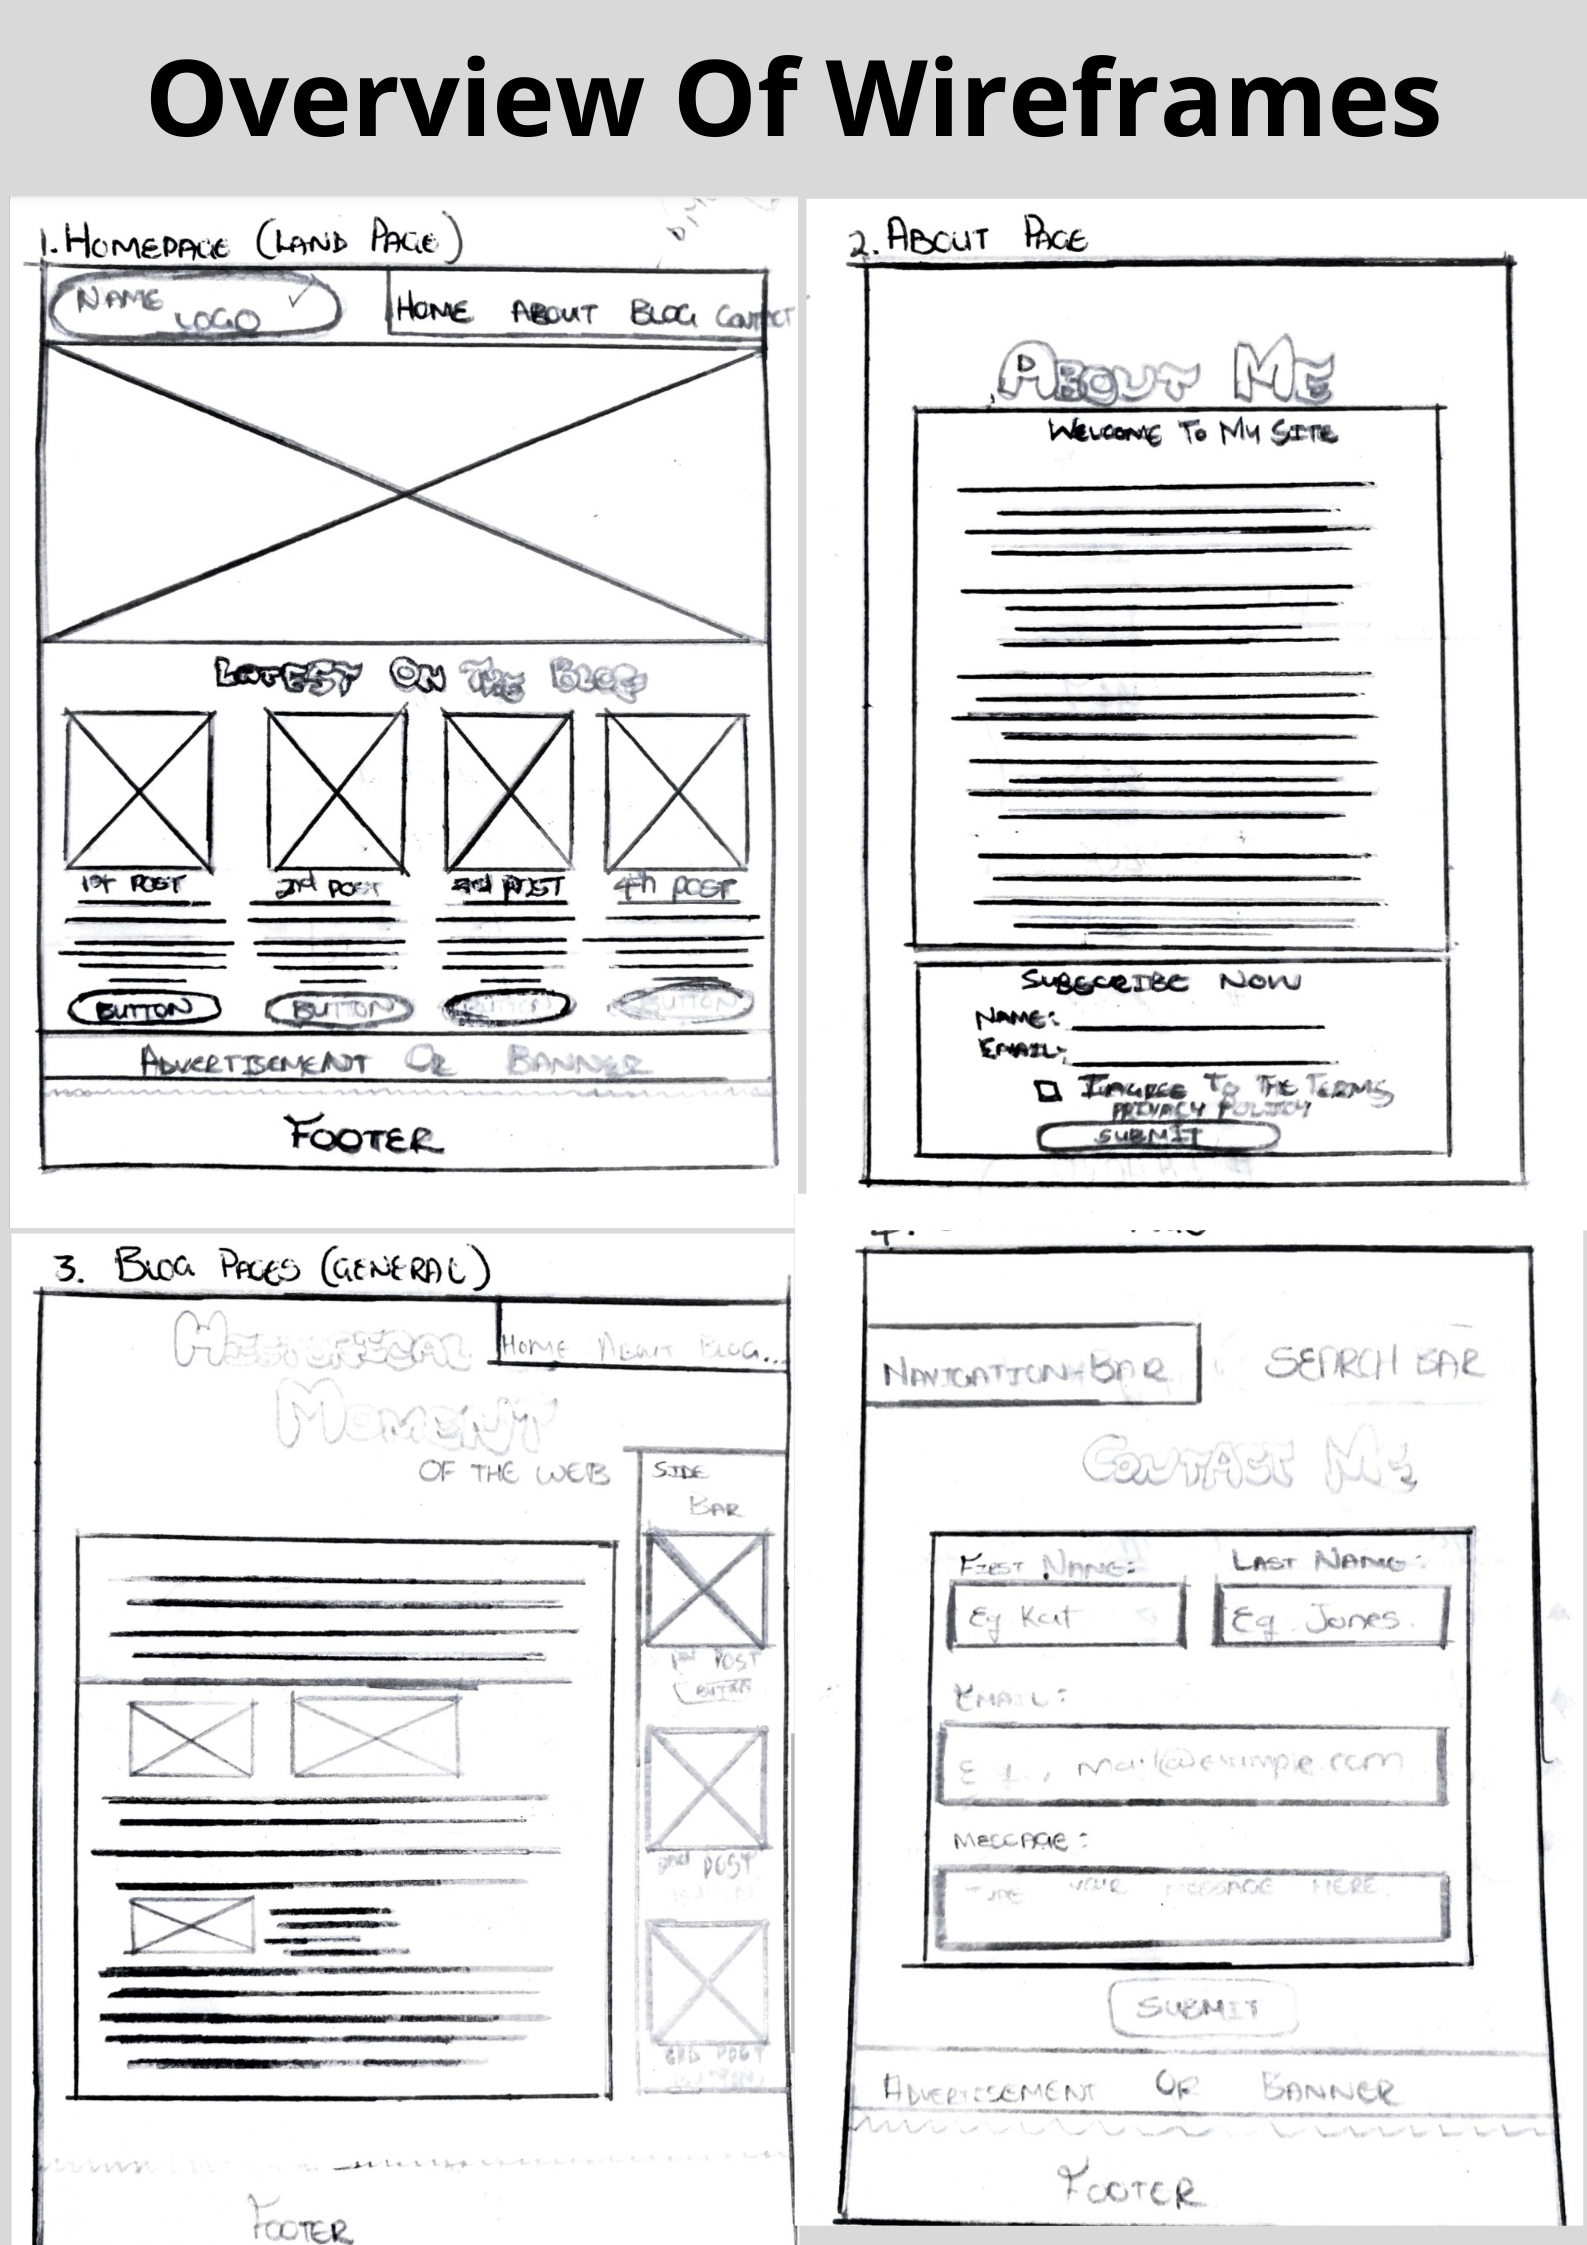 Overview Of Wireframes
1. HOMEPAGE (LAND PAGE)
NAME
LOGO
HOME ABOUT BLOG CONTACT
LATEST ON THE BLOG
1st POST 2nd POST 3rd POST 4th POST
BUTTON BUTTON BUTTON BUTTON
ADVERTISEMENT OR BANNER
FOOTER
2. ABOUT PAGE
ABOUT ME
WELCOME TO MY SITE
SUBSCRIBE NOW
NAME:
EMAIL:
I AGREE TO THE TERMS
PRIVACY POLICY
SUBMIT
3. BLOG PAGES (GENERAL)
HISTORICAL
HOME ABOUT BLOG...
MOMENT
OF THE WEB
SIDE
BAR
1st POST
BUTTON
2nd POST
3RD POST
FOOTER
NAVIGATION-BAR SEARCH BAR
CONTACT ME
FIRST NAME: LAST NAME:
Eg Kat Eg. Jones
EMAIL:
E.g., mail@example.com
MESSAGE:
TYPE YOUR MESSAGE HERE.
SUBMIT
ADVERTISEMENT OR BANNER
FOOTER